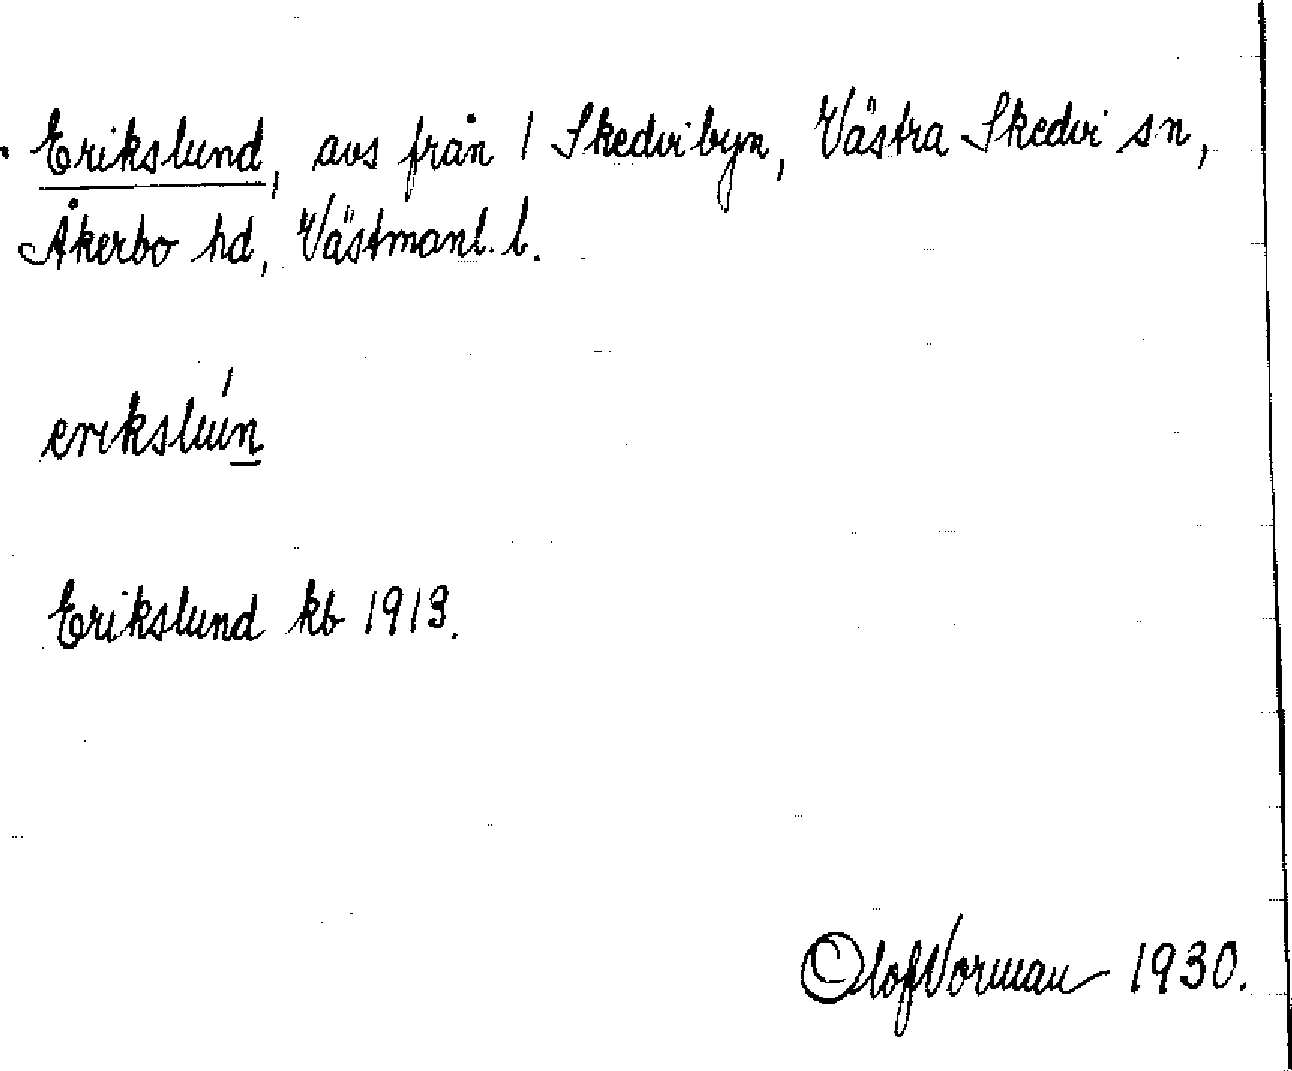 Erikslund, avs från 1 Skedvibyn, Västra Skedvi sn,
Åkerbo hd, Västmanl. l.
erikslún
Erikslund kb 1913.
Olof Vorman 1930.